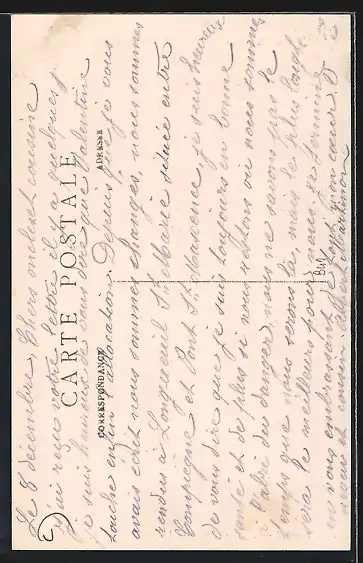 CARTE POSTALE
CORRESPONDANCE
ADRESSE
Le 8 decembre, Chers oncle et cousine
J'ai reçu votre lettre il y a quelques j.
je suis heureux de vous dire que Valentine
touche enfin l'allocation. Depuis que je vous
avais écrit nous sommes changés, nous sommes
rendus à Longueuil Ste Marie située entre
Compiègne et Pont Ste Maxence, je suis heureux
de vous dire que je suis toujours en bonne
santé et de plus si nous restons où nous sommes
à l'abri du danger, nous ne savons pas le
temps que nous serons là, mais le plus longt.
sera le meilleurs pour nous, je termine
en vous embrassant de tout mon cœur. V
neveu et cousin Albert Martinon